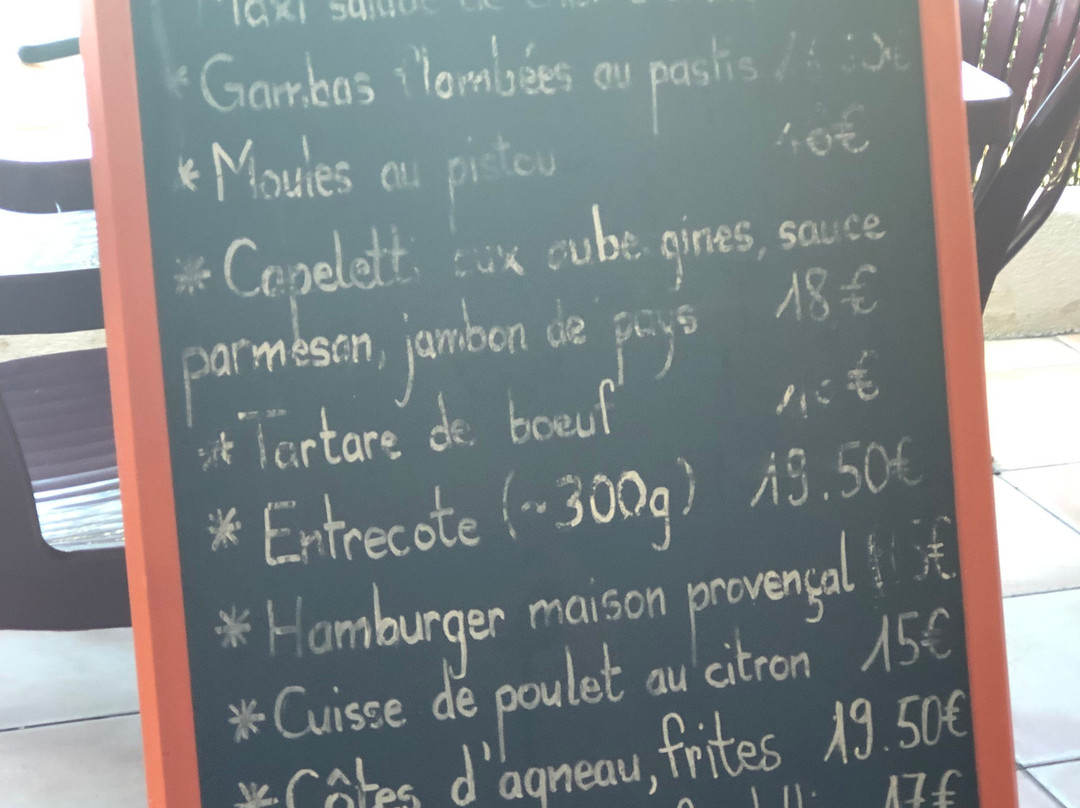 * Gambas flambées au pastis
* Moules au pistou
* Capeletti aux aubergines, sauce
parmesan, jambon de pays 18€
* Tartare de boeuf
* Entrecote (~300g) 19.50€
* Hamburger maison provençal
* Cuisse de poulet au citron 15€
* Côtes d'agneau, frites 19.50€
17€